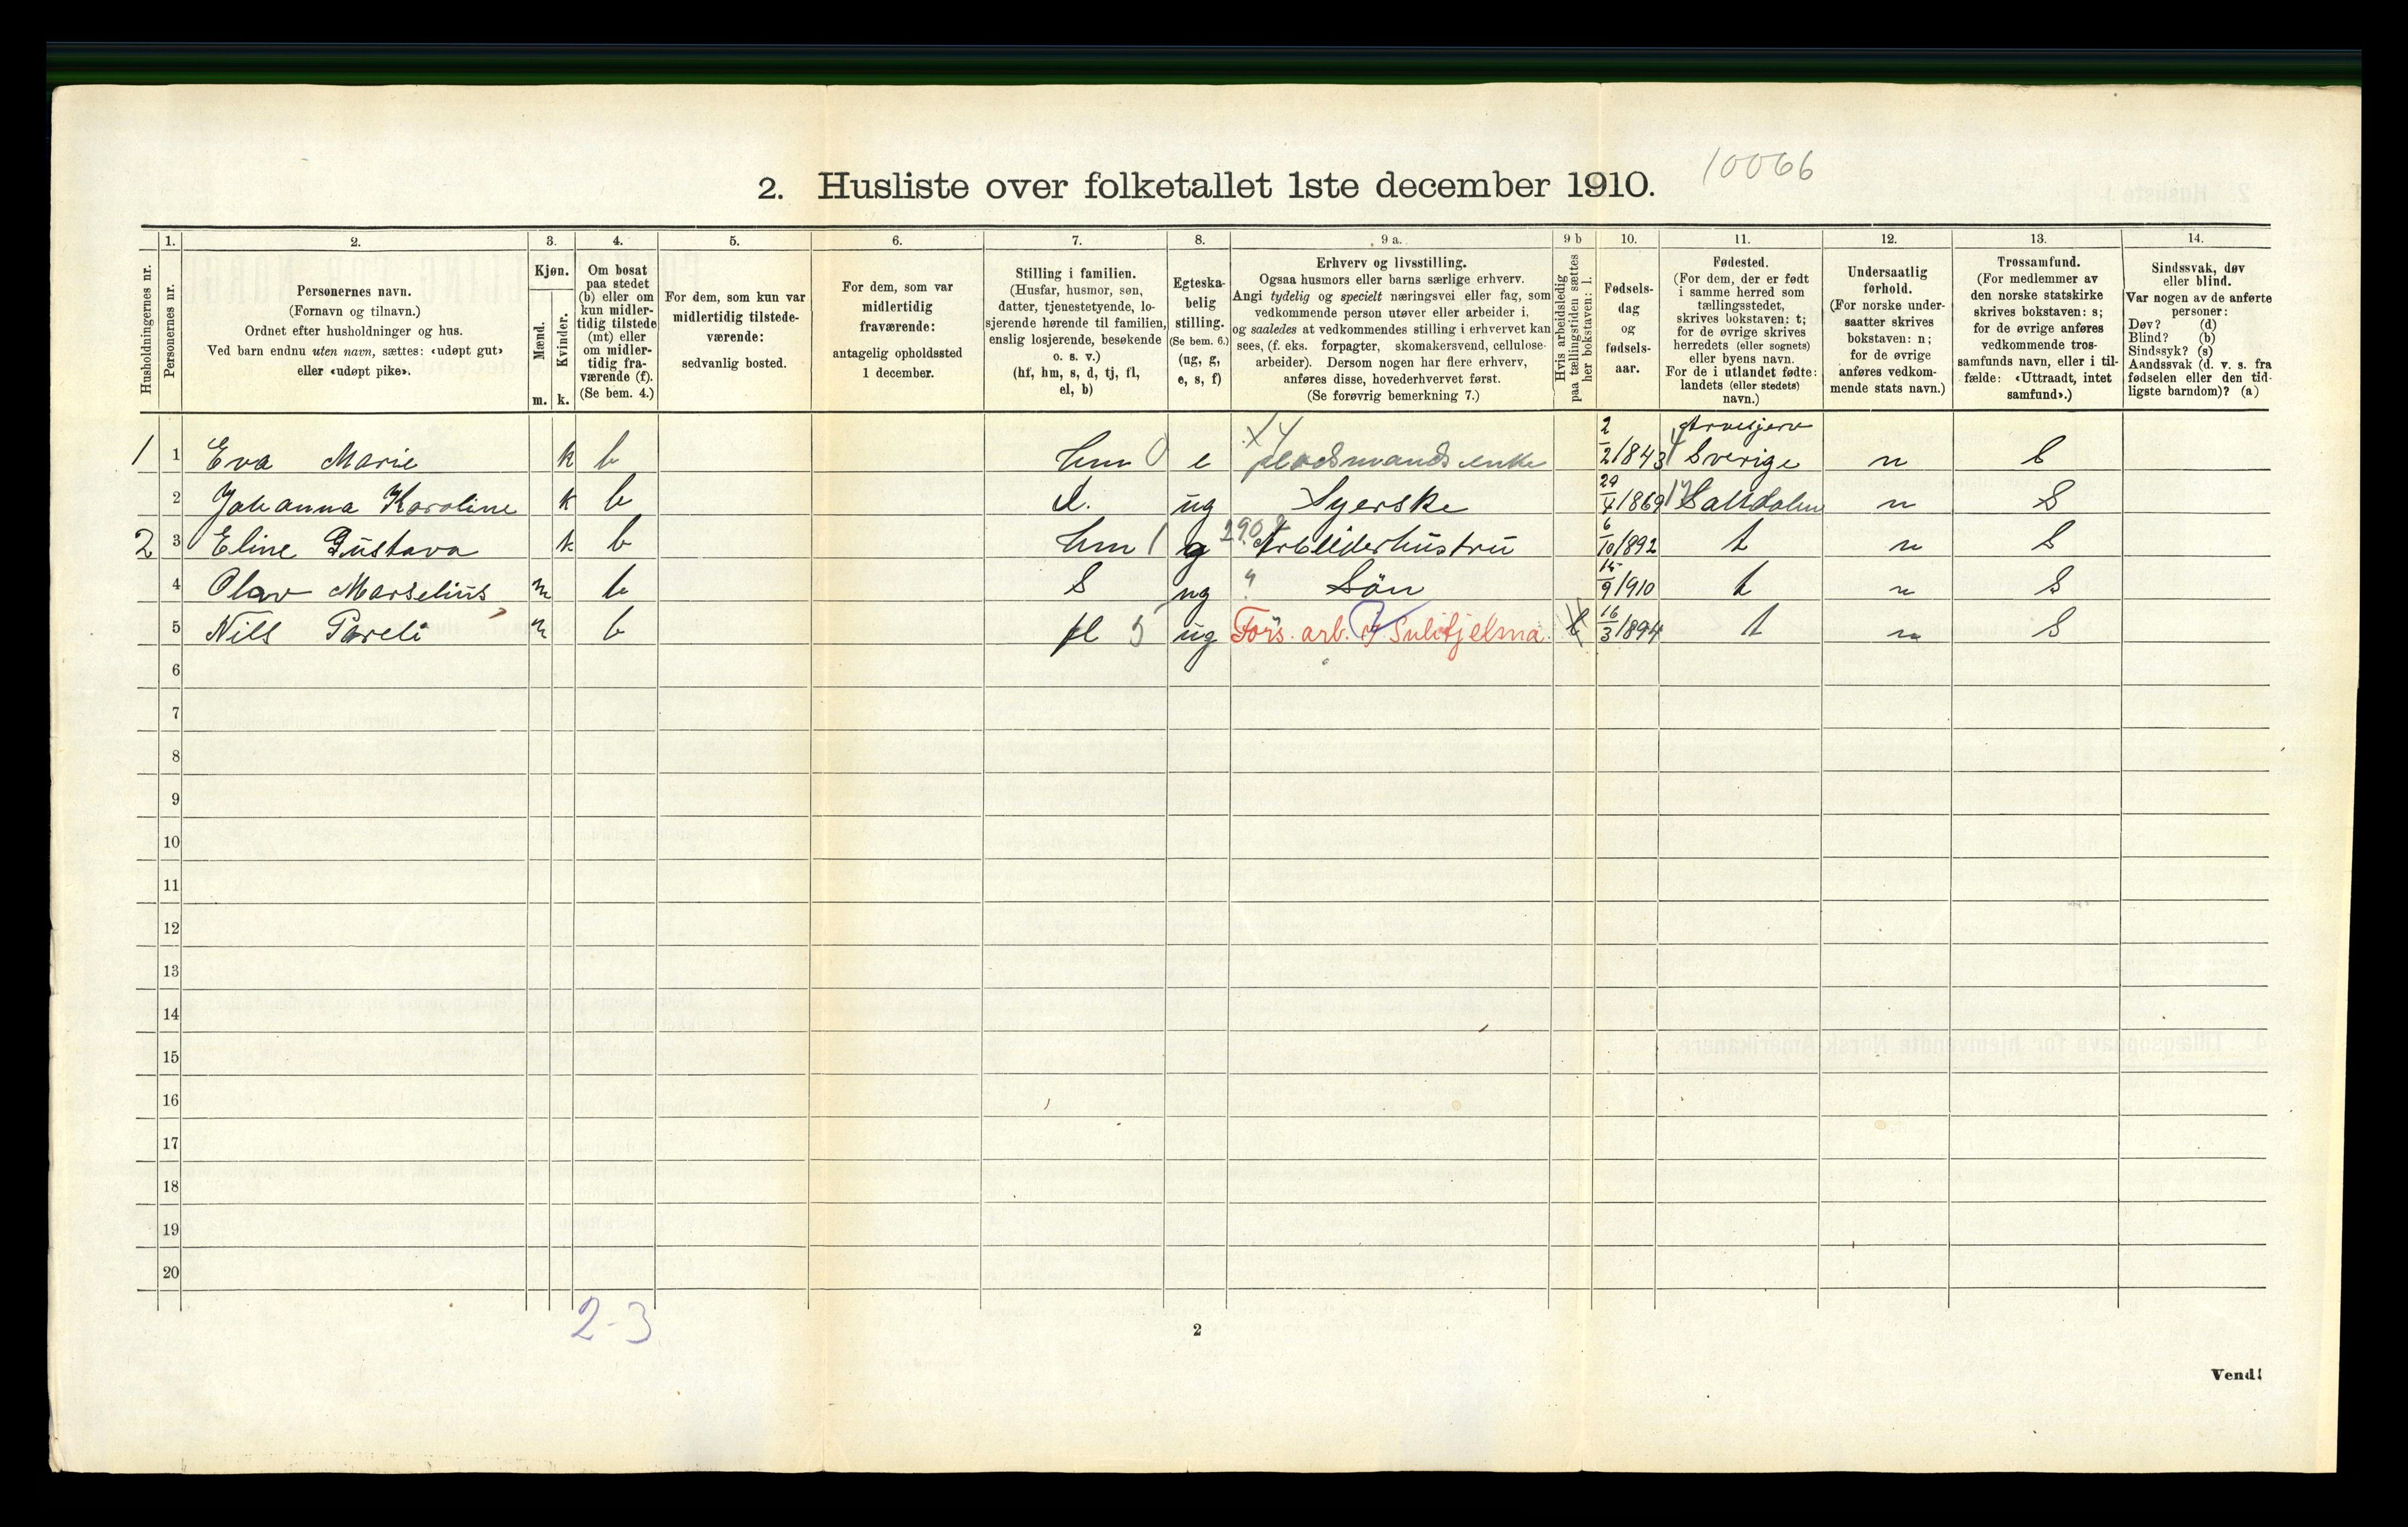 10066
2. Husliste over folketallet 1ste december 1910.
Husholdningernes nr.
1.
Personernes nr.
2.
Personernes navn.
(Fornavn og tilnavn.)
Ordnet efter husholdninger og hus.
Ved barn endnu uten navn, sættes: «udøpt gut»
eller «udøpt pike».
3.
Kjøn.
Mænd.
Kvinder.
m. k.
4.
Om bosat
paa stedet
(b) eller om
kun midler-
tidig tilstede
(mt) eller
om midler-
tidig fra-
værende (f).
(Se bem. 4.)
5.
For dem, som kun var
midlertidig tilstede-
værende:
sedvanlig bosted.
6.
For dem, som var
midlertidig
fraværende:
antagelig opholdssted
1 december.
7.
Stilling i familien.
(Husfar, husmor, søn,
datter, tjenestetyende, lo-
sjerende hørende til familien,
enslig losjerende, besøkende
o. s. v.)
(hf, hm, s, d, tj, fl,
el, b)
8.
Egteska-
belig
stilling.
(Se bem. 6.)
(ug, g,
e, s, f)
9 a.
Erhverv og livsstilling.
Ogsaa husmors eller barns særlige erhverv.
Angi tydelig og specielt næringsvei eller fag, som
vedkommende person utøver eller arbeider i,
og saaledes at vedkommendes stilling i erhvervet kan
sees, (f. eks. forpagter, skomakersvend, cellulose-
arbeider). Dersom nogen har flere erhverv,
anføres disse, hovederhvervet først.
(Se forøvrig bemerkning 7.)
9 b
Hvis arbeidsledig
paa tællingstiden sættes
her bokstaven: l.
10.
Fødsels-
dag
og
fødsels-
aar.
11.
Fødested.
(For dem, der er født
i samme herred som
tællingsstedet,
skrives bokstaven: t;
for de øvrige skrives
herredets (eller sognets)
eller byens navn.
For de i utlandet fødte:
landets (eller stedets)
navn.)
12.
Undersaatlig
forhold.
(For norske under-
saatter skrives
bokstaven: n;
for de øvrige
anføres vedkom-
mende stats navn.)
13.
Trossamfund.
(For medlemmer av
den norske statskirke
skrives bokstaven: s;
for de øvrige anføres
vedkommende tros-
samfunds navn, eller i til-
fælde: «Uttraadt, intet
samfund».)
14.
Sindssvak, døv
eller blind.
Var nogen av de anførte
personer:
Døv? (d)
Blind? (b)
Sindssyk? (s)
Aandssvak (d. v. s. fra
fødselen eller den tid-
ligste barndom)? (a)
1 1 Eva Marie k b hm 0 e enke 2/2 1843 4 Sverige n S
2 Johanna Karoline k b d. ug Syerske 29/4 1869 Saltdalen n S
2 3 Eline Gustava k b hm 1 g Arbeiderhustru 6/10 1892 t n S
4 Olav Marselius m b S ug " Sön 15/9 1910 t n S
5 Nills Pareli m b fl 5 ug Fors. arb. v Sulitjelma 16/3 1894 t n S
6
7
8
9
10
11
12
13
14
15
16
17
18
19
20
2-3
2
Vend!